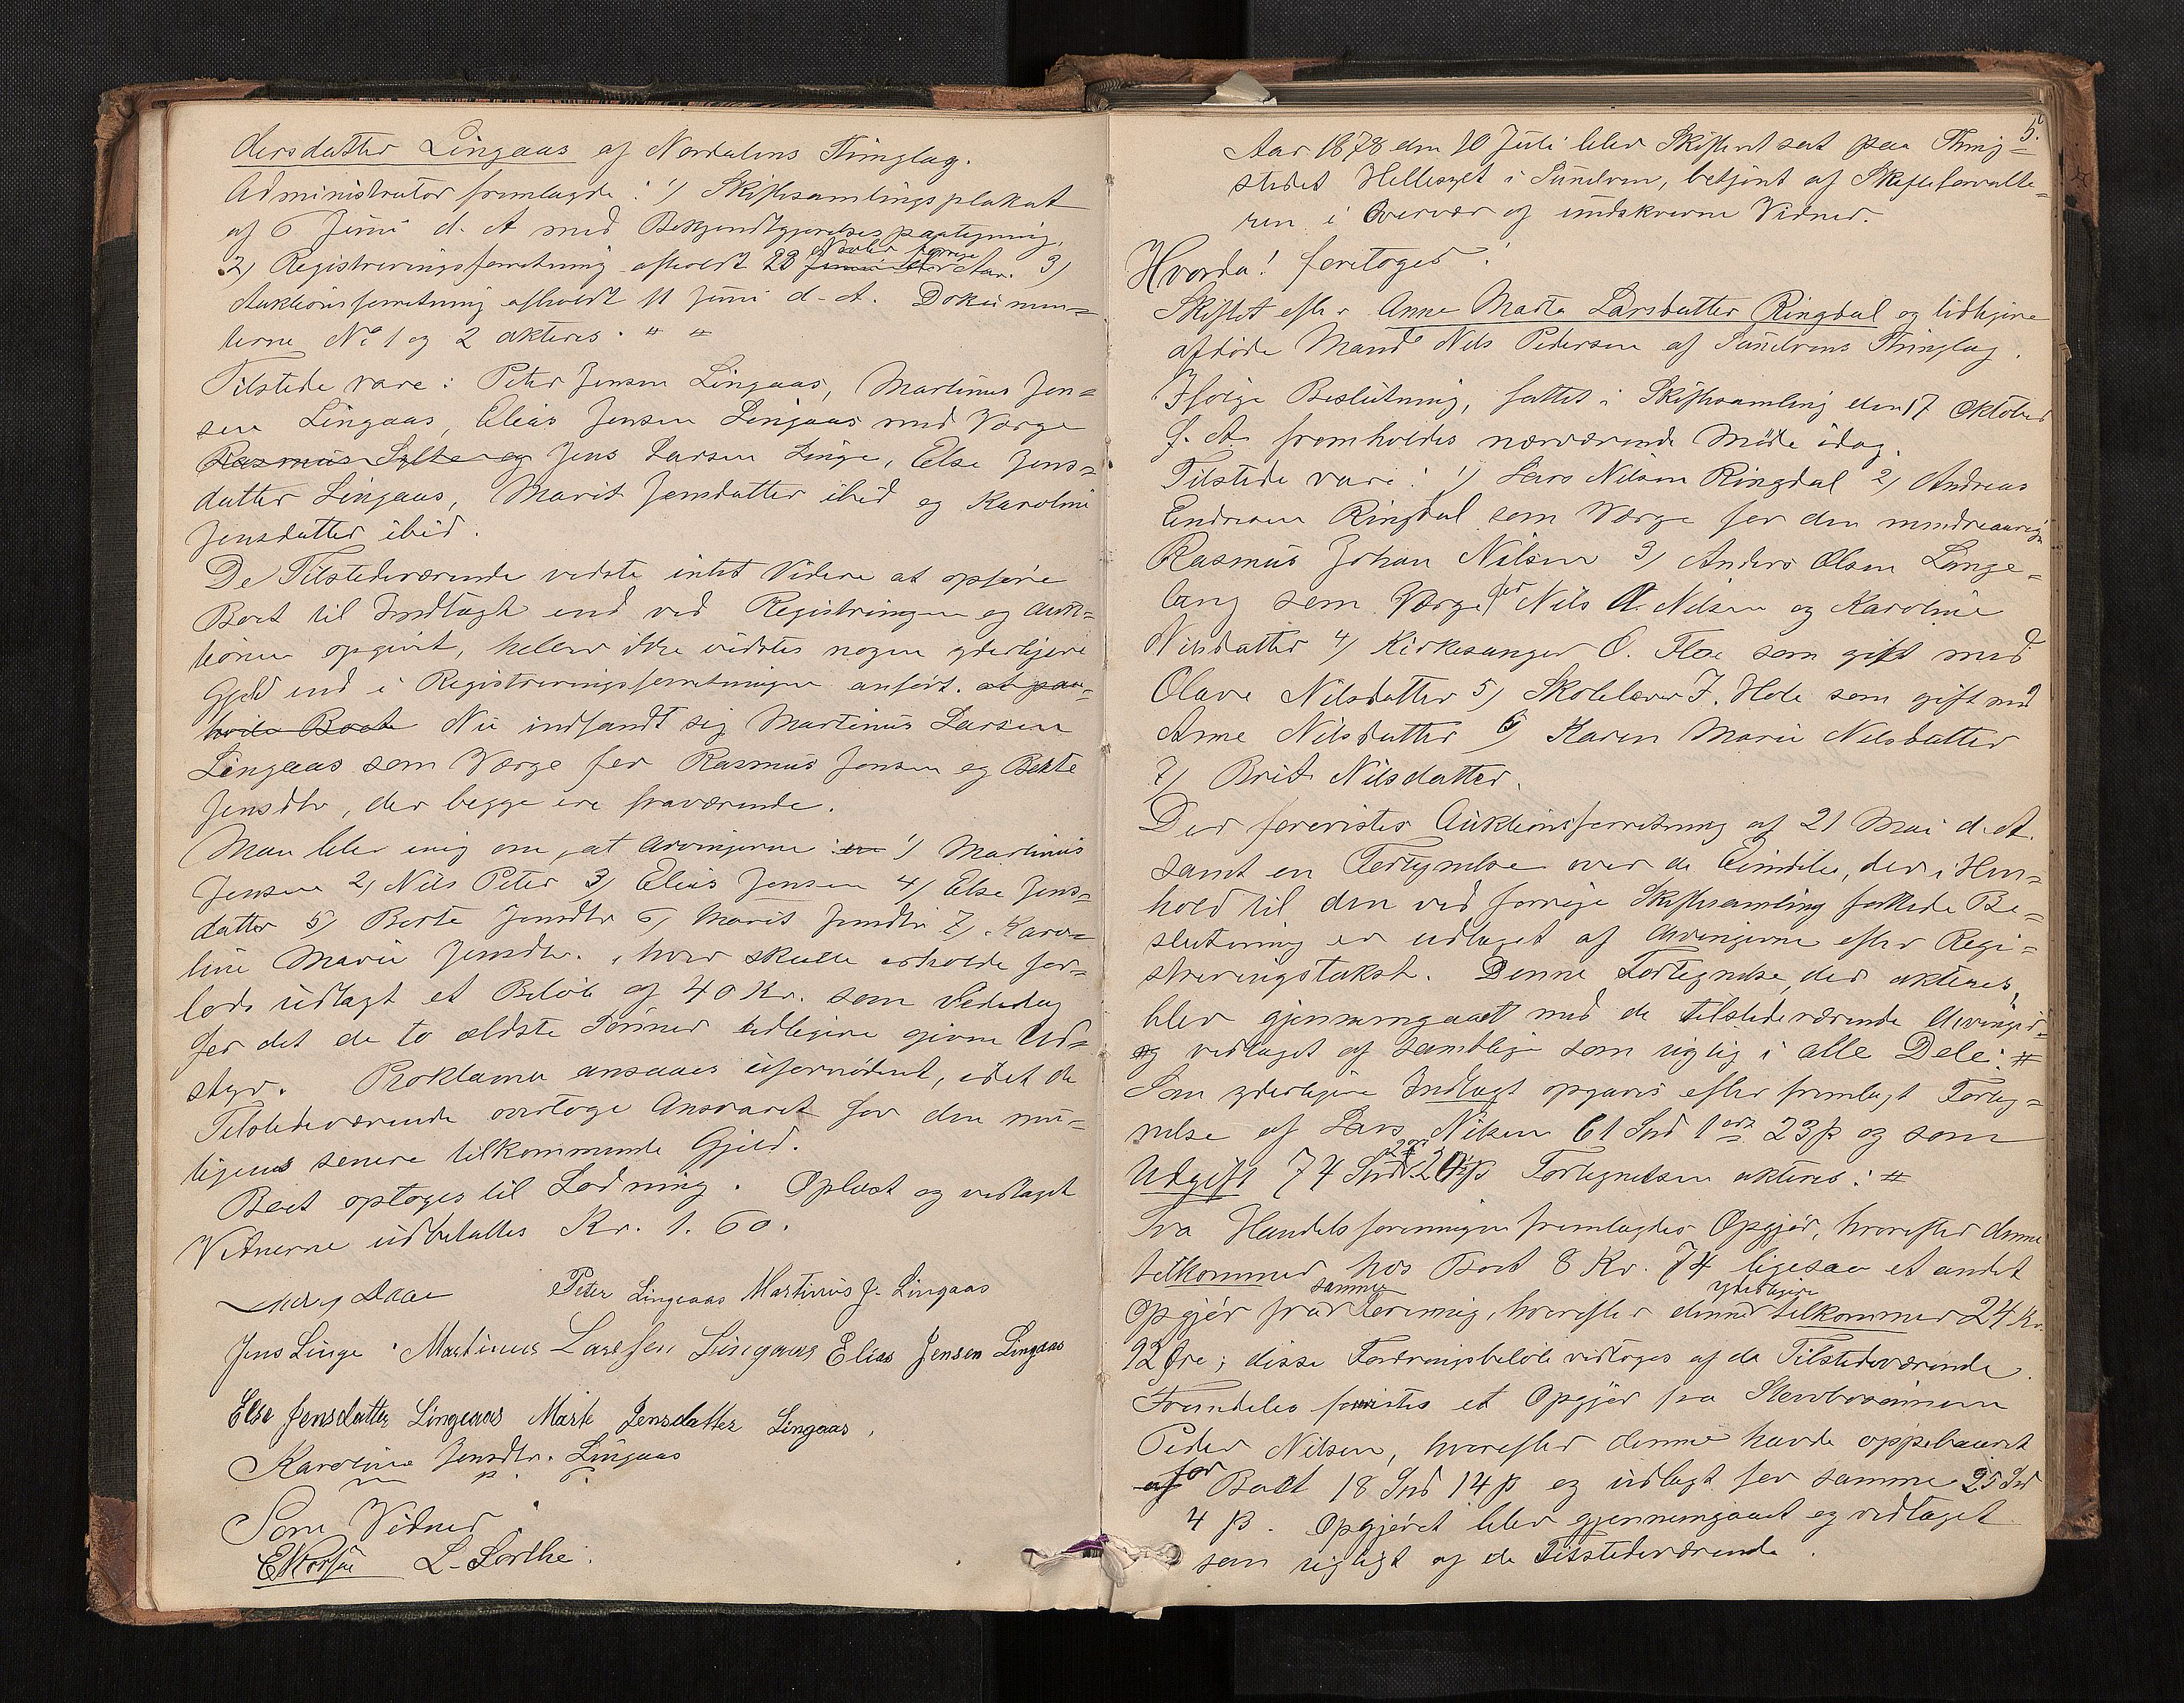 dersdatter Lingaas af Nordalens Thinglag.
Administrator fremlagde: 1) Skiftesamlingsplakat
af 6 Juni d. A med Bekjendtgjørelsespaategning,
2) Registreringsforretning afholdt 23 Novbr forrige Aar. 3)
Auktionsforretning afholdt 11 Juni d. A. Dokumen=
terne No 1 og 2 akteres. " "
Tilstede vare: Peter Jensen Lingaas, Martinus Jen=
sen Lingaas, Elias Jensen Lingaas med Værge
Rasmus Sylte og Jens Larsen Linge, Else Jens=
datter Lingaas, Marit Jensdatter ibid og Karoline
Jensdatter ibid.
De Tilstedeværende vidste intet Videre at opføre
Boet til Indtægt end ved Registreringen og Auk=
tionen opgivet, heller ikke vidstes nogen yderligere
Gjeld end i Registreringsforretningen anført. at paa=
hvile Boet Nu indfandt sig Martinus Larsen
Lingaas som Værge for Rasmus Jensen og Berte
Jensdtr, der begge ere fraværende.
Man blev enig om, at Arvingerne 1) Martinus
Jensen 2) Nils Peter 3) Elias Jensen 4) Else Jens=
datter 5) Berte Jensdtr 6) Marit Jensdtr 7) Karo=
line Marie Jensdtr., hver skulle erholde for=
lods udlagt et Beløb af 40 Kr. som Vederlag
for det de to ældste Sønner tidligere givne Ud=
styr. Proklama ansaaes ufornødent, idet de
Tilstedeværende overtoge Ansvaret for den mu=
ligens senere tilkommende Gjeld.
Boet optoges til Lodning. Oplæst og vedtaget
Vidnerne udbetaltes Kr. 1. 60.
Daae Peter Lingaas Martinus J. Lingaas
Jens Linge Martinus Larssen Lingaas Elias Jensen Lingaas
Else Jensdatter Lingaas Marte Jensdatter Lingaas,
Karoline Jensdtr. Lingaas
m p. P.
Som Vidner:
L. Sorthe.
5.
Aar 1878 den 10 Juli blev Skifteret sat paa Thing=
stedet Hellesylt i Sunelven, betjent af Skifteforvalte=
ren i Overvær af undskrevne Vidner.
Hvorda! foretoges:
Skiftet efter Anne Marta Larsdatter Ringdal og tidligere
afdøde Mand Nils Pedersen af Sunelvens Thinglag.
Ifølge Beslutning, fattet i Skiftesamling den 17 Oktober
f. A. fremholdes nærværende Møde idag.
Tilstede vare: 1) Lars Nilsen Ringdal 2) Andreas
Endresen Ringdal som Værge for den mindreaarige
Rasmus Johan Nilsen 3) Anders Olsen Lange=
lang som Værge for Nils A. Nilsen og Karoline
Nilsdatter 4) Kirkesanger O. Floe som gift med
Olave Nilsdatter 5) Skolelærer J. Hole som gift med
Anne Nilsdatter 6) Karen Marie Nilsdatter
7) Brit Nilsdatter.
Der forevistes Auktionsforretning af 21 Mai d. A.
samt en Fortegnelse over de Eiendele, der i Hen=
hold til den ved forrige Skiftesamling fattede Be=
slutning er udtaget af Arvingerne efter Regi=
streringstakst. Denne Fortegnelse, der akteres,
blev gjennemgaaet med de tilstedeværende Arvinger
og vedtaget af samtlige som rigtig i alle Dele: #
Som yderligere Indtægt opgaves efter fremlagt Forteg=
nelse af Lars Nilsen 61 Spd 1 ort 23 ß og som
Udgift 74 Spd 2 ort ß Fortegnelsen akteres: #
Fra Handelsforeningen fremlagdes Opgjør, hvorefter denne
tilkommer hos Boet 8 Kr. 74 ligesaa et andet
Opgjør fra samme Forening, hvorefter denne yderligere tilkommer 24 Kr.
92 Øre; disse Fordringsbeløb vedtoges af de Tilstedeværende.
Fremdeles forevistes et Opgjør fra Stervbosønnen
Peder Nilsen, hvorefter denne havde oppebaaret
af for Boet 18 Spd 14 ß og udlagt for samme 25 Spd
4 ß. Opgjøret blev gjennemgaaet og vedtaget
som rigtigt af de Tilstedeværende.